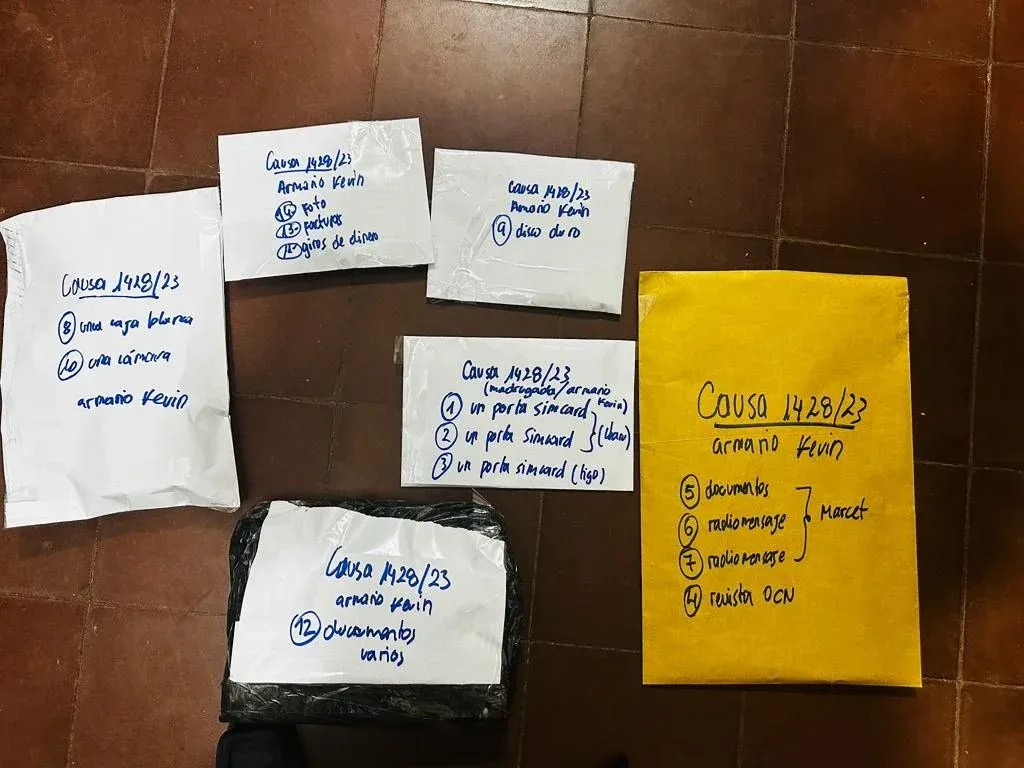 Causa 1428/23
Armario Kevin
14 foto
13 facturas
giros de dinero
Causa 1428/23
Armario Kevin
9 disco duro
Causa 1428/23
8 una caja blanca
una cámara
armario Kevin
Causa 1428/23
(madrugada/armario Kevin)
1 un porta simcard
2 un porta simcard
3 un porta simcard (tigo)
Causa 1428/23
armario Kevin
5 documentos
6 radiomensaje
7 radiomensaje
Marcet
4 revista OCN
Causa 1428/23
armario Kevin
12 documentos
varios